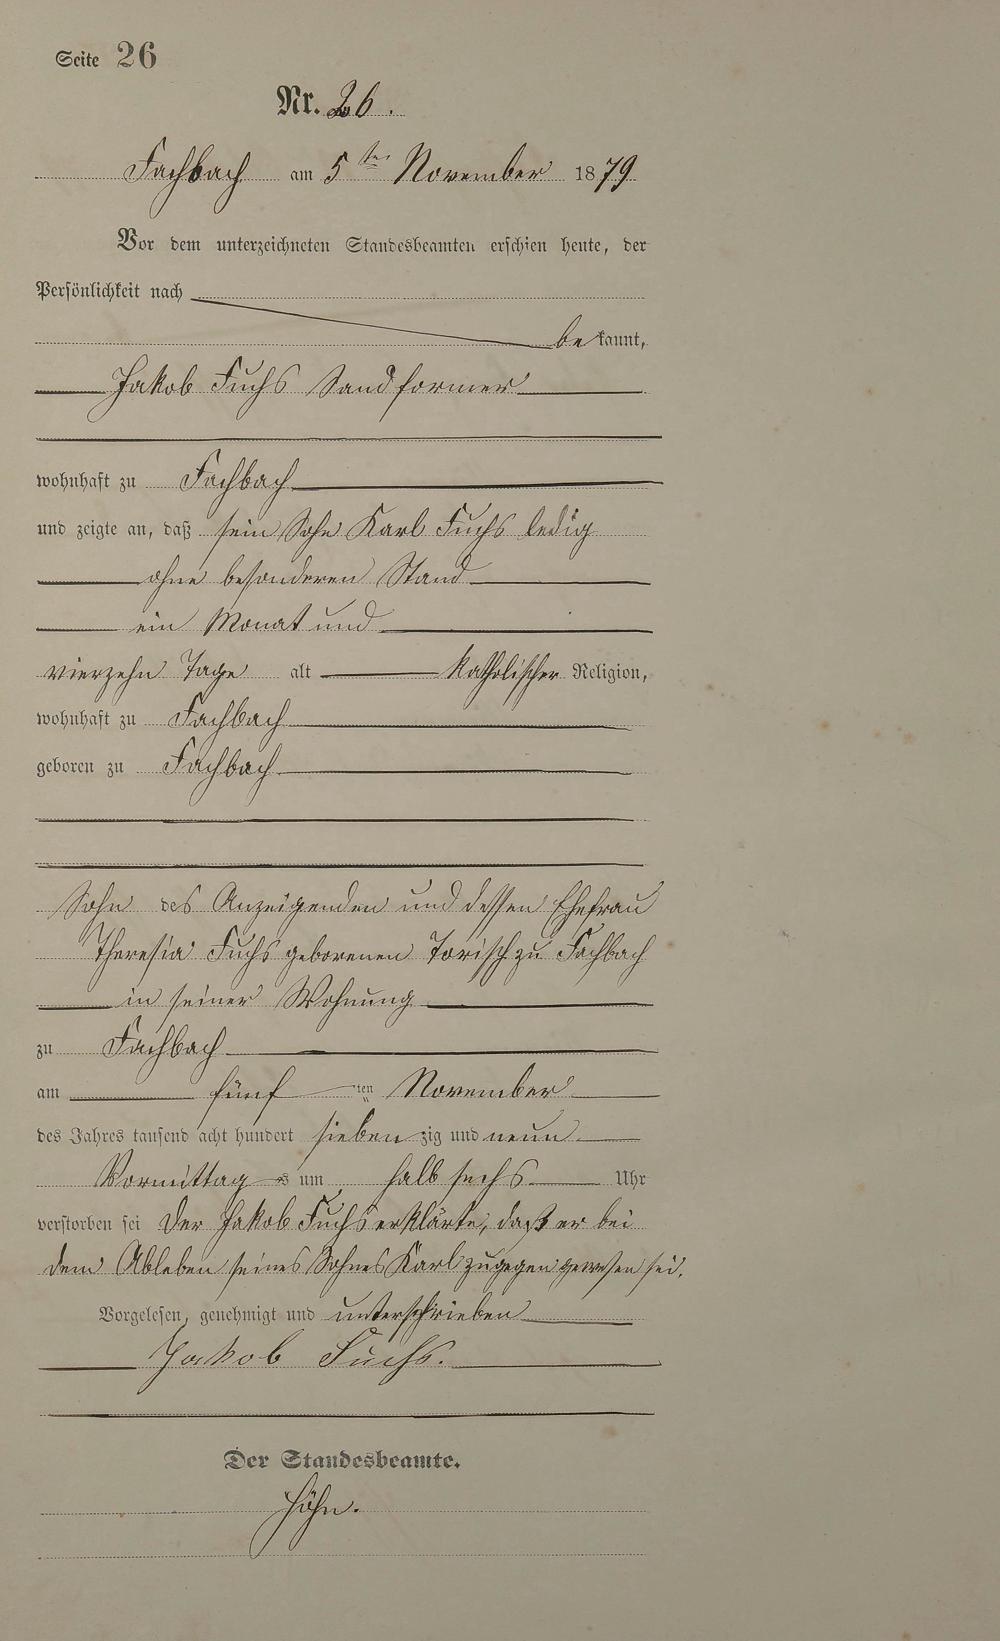 Seite 26
Nr. 26.
Fachbach am 5ten November 1879
Vor dem unterzeichneten Standesbeamten erschien heute, der
Persönlichkeit nach
bekannt,
Jakob Fuchs Sandformer
wohnhaft zu Fachbach
und zeigte an, daß sein Sohn Karl Fuchs ledig
ohne besonderen Stand
ein Monat und
vierzehn Tage alt katholischer Religion,
wohnhaft zu Fachbach
geboren zu Fachbach
Sohn des Anzeigenden und dessen Ehefrau
Theresia Fuchs geborenen Torisch zu Fachbach
in seiner Wohnung
zu Fachbach
am fünften November
des Jahres tausend acht hundert siebenzig und neun
Vormittags um halb sechs Uhr
verstorben sei Der Jakob Fuchs erklärte, daß er bei
dem Ableben seines Sohnes Karl zugegen gewesen sei.
Vorgelesen, genehmigt und unterschrieben
Jakob Fuchs.
Der Standesbeamte.
Höhn.